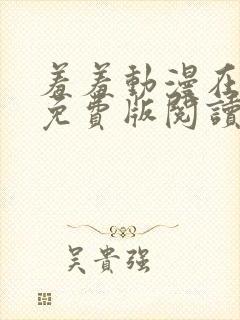 羞羞動漫在
免費版閱讀
吳貴強